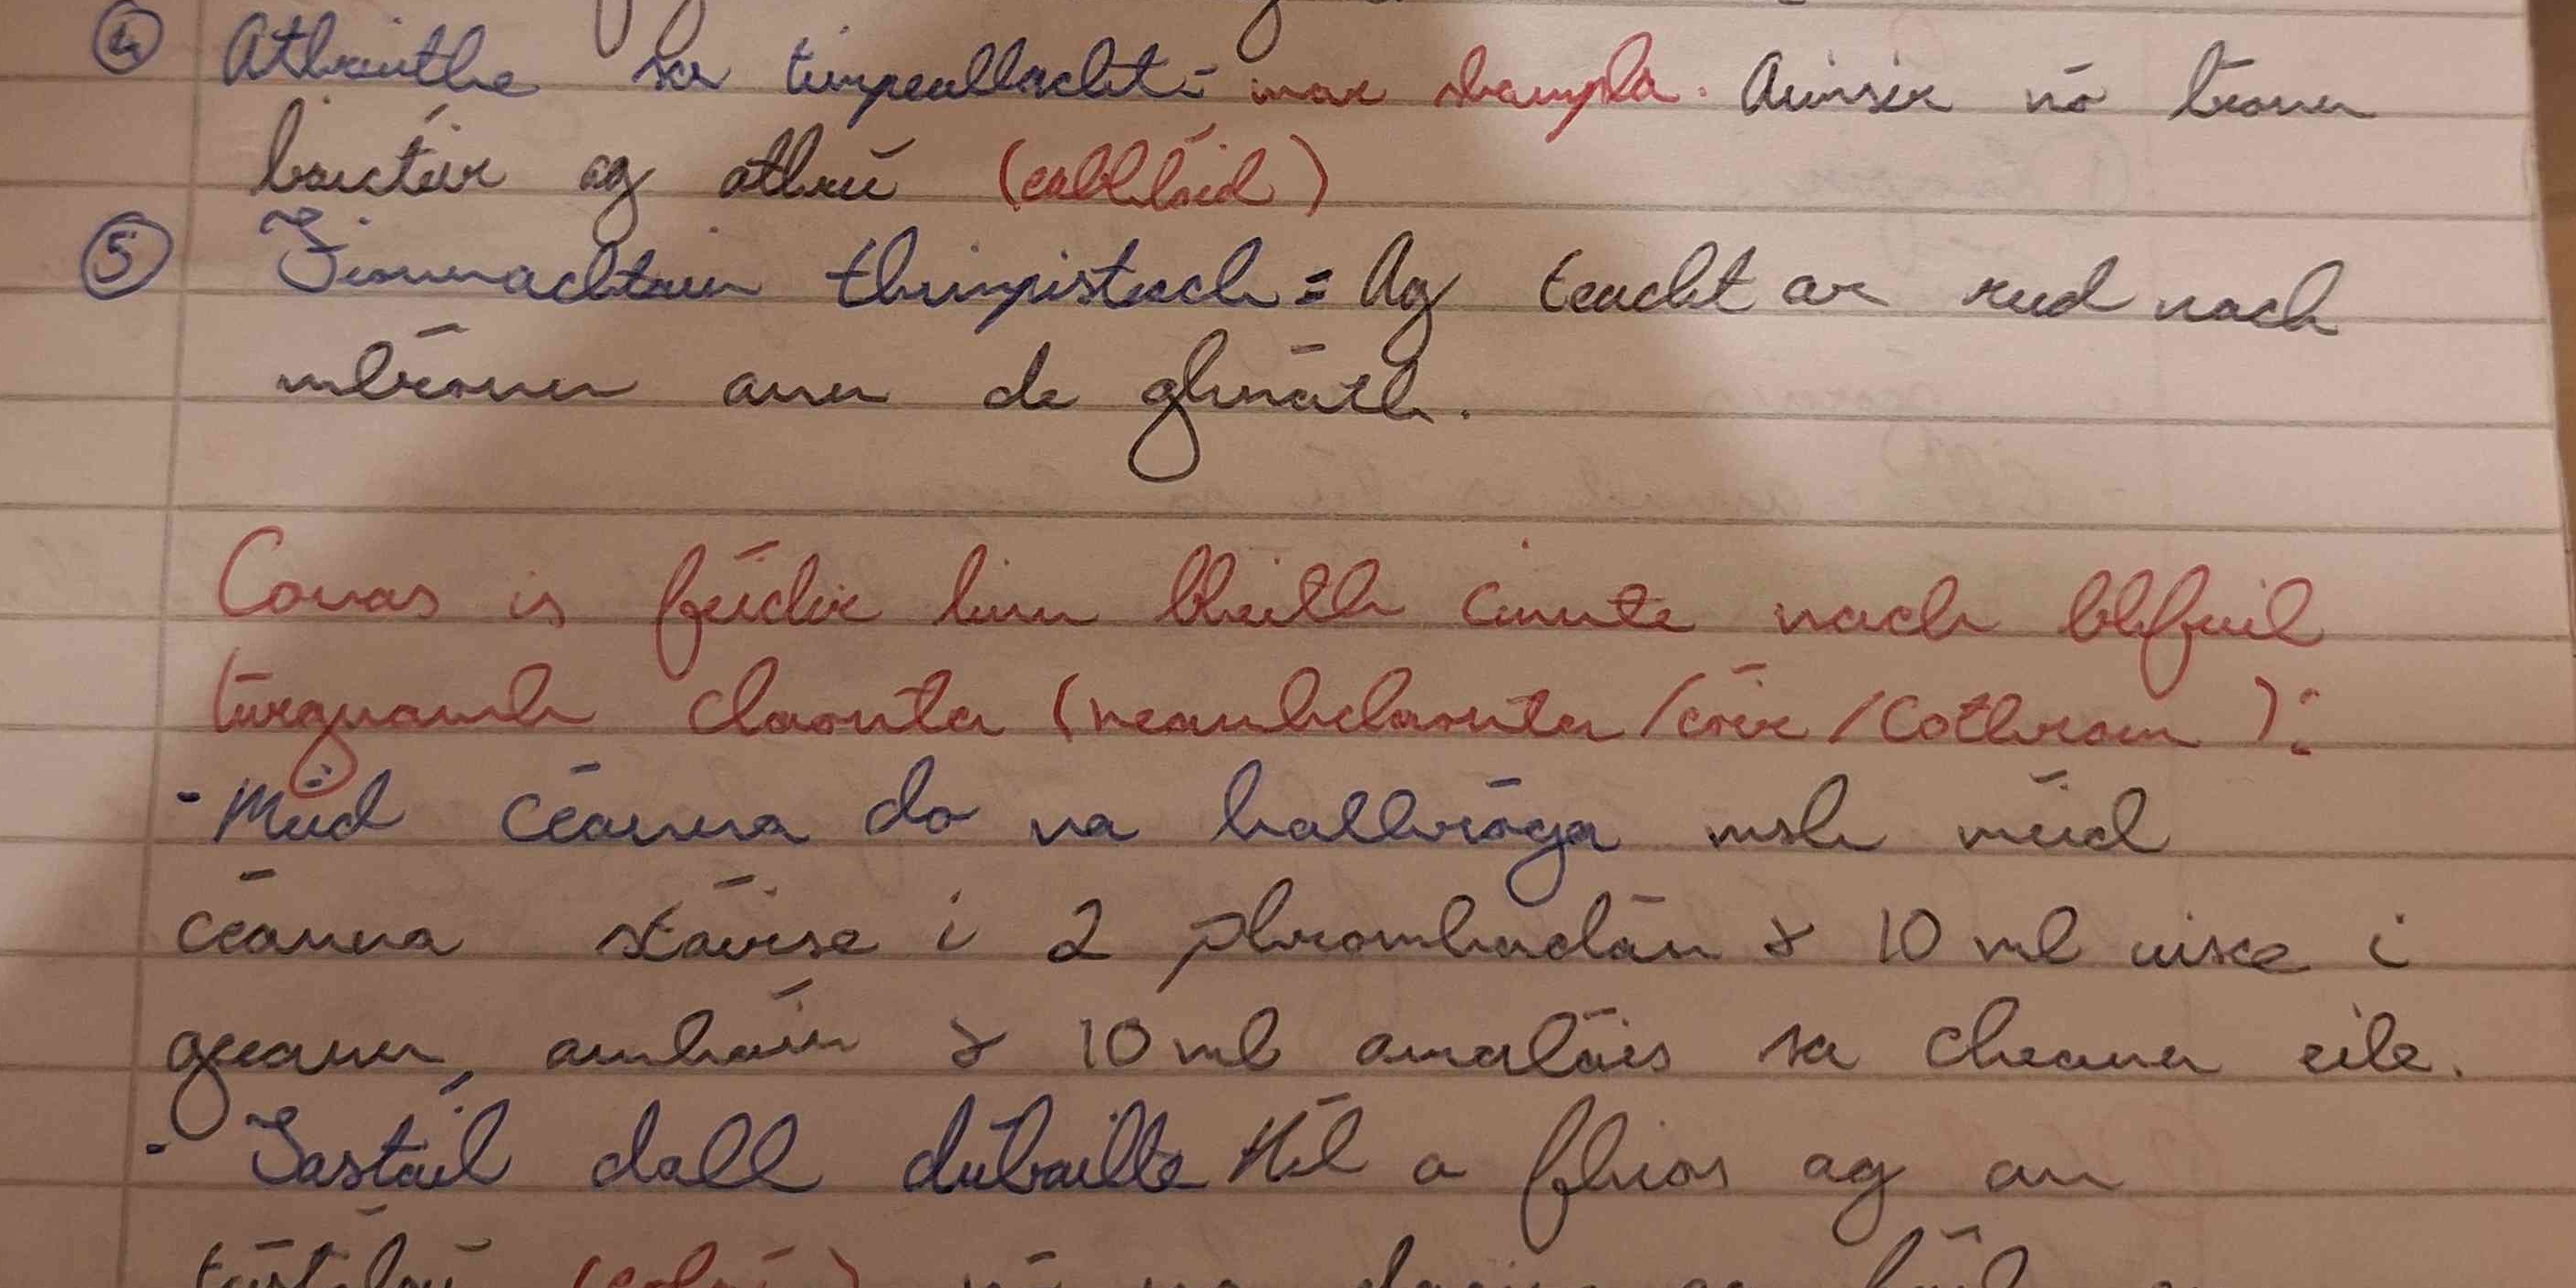 ④ Athruithe sa timpeallacht- mar shampla. Aimsir nó treann
baictéir ag athrú (eallóid)
⑤ Fionnachtain thimpisteach = Ag teacht ar rud nach
mbíonn ann de ghnáth.
Conas is féidir linn bheith cinnte nach bhfuil
turgnamh claonta (neamhchlaonta /cóir /cothrom ):
- Méid céanna do na hathróga msh méid
céanna stáirse i 2 phromhadán & 10 ml uisce i
gceann amháin & 10 ml amaláis sa cheann eile.
- Tastáil dall dúbailte Níl a fhios ag an
tástálaí